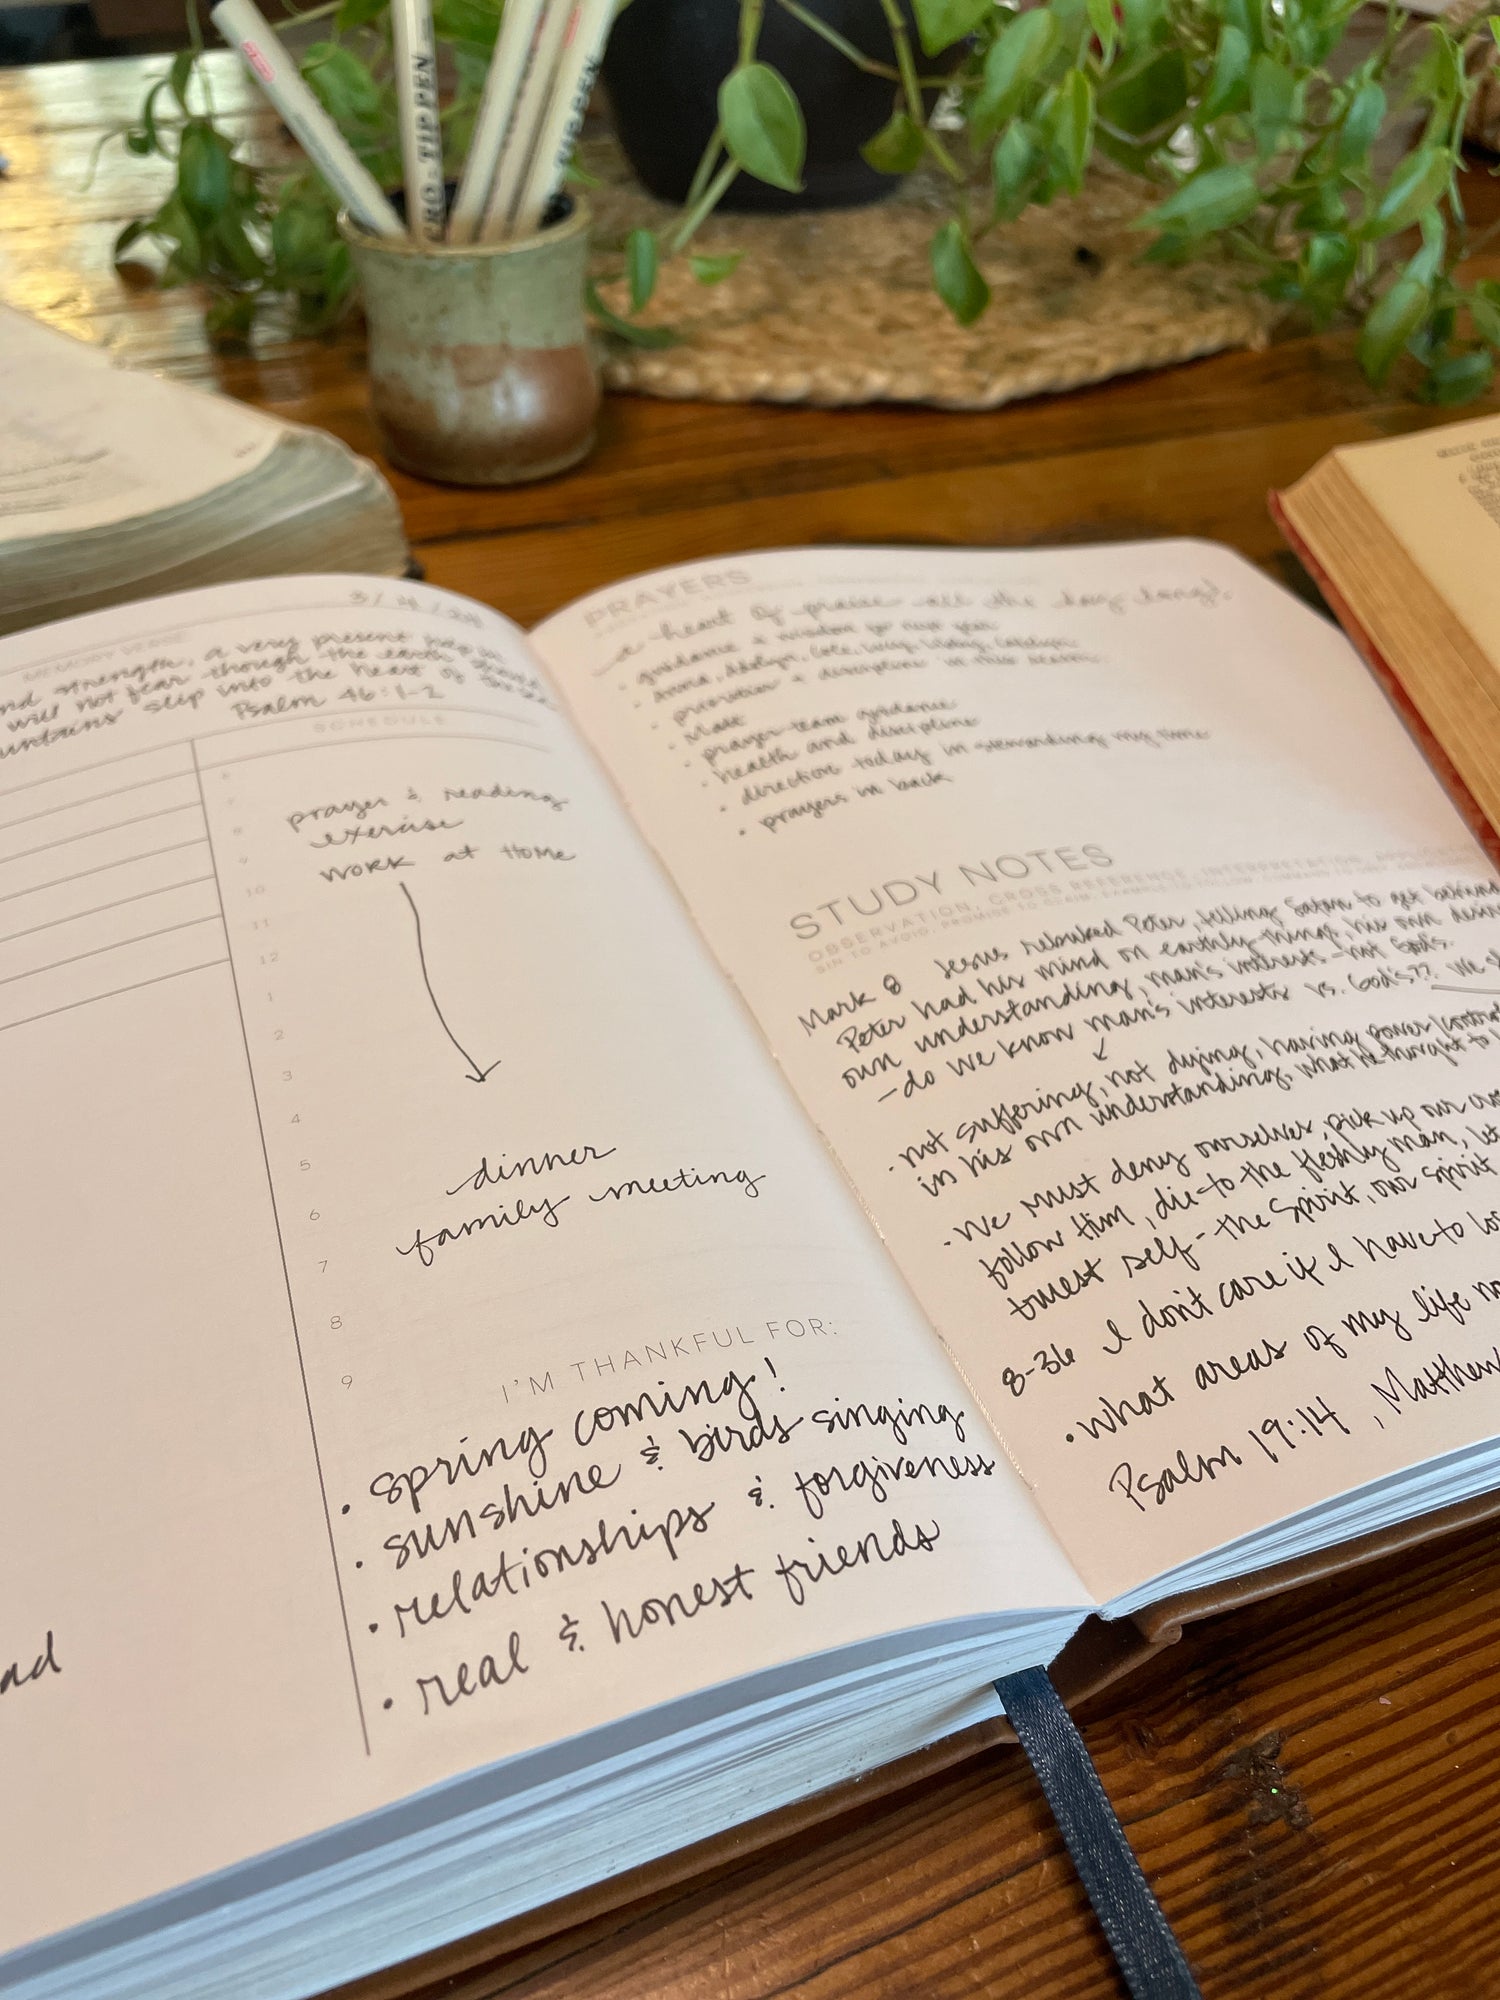 RO-TIPPEN
3/4/24
MEMORY VERSE
and strength, a very present help in
will not fear though the earth
mountains slip into the heart of the sea
Psalm 46:1-2
SCHEDULE
6
7
8
9
10
11
12
1
2
3
4
5
6
7
8
9
prayer & reading
exercise
work at home
dinner
family meeting
I'M THANKFUL FOR:
• spring coming!
• sunshine & birds singing
• relationships & forgiveness
• real & honest friends
ad
PRAYERS
a heart of praise all the day long!
• guidance & wisdom for next year
• Anna, Cole, Lucy, Libby,
• discipline in this season
• Matt
• prayer team guidance
• health and discipline
• direction today in stewarding my time
• prayers in back
STUDY NOTES
OBSERVATION, CROSS REFERENCE, INTERPRETATION,
SIN TO AVOID, PROMISE TO CLAIM, EXAMPLE TO FOLLOW, COMMAND TO
Mark 8 Jesus rebuked Peter, telling Satan to get behind
Peter had his mind on earthly things, his own desires
own understanding, man's interests - not God's.
- do we know man's interests vs. God's?? We
• not suffering, not dying, having power/control
in his own understanding, what he thought to
• We must deny ourselves, pick up our
follow Him, die to the fleshly man, let
truest self - the Spirit, our spirit
8-36 I don't care if I have to
• what areas of my life
Psalm 19:14, Matthew